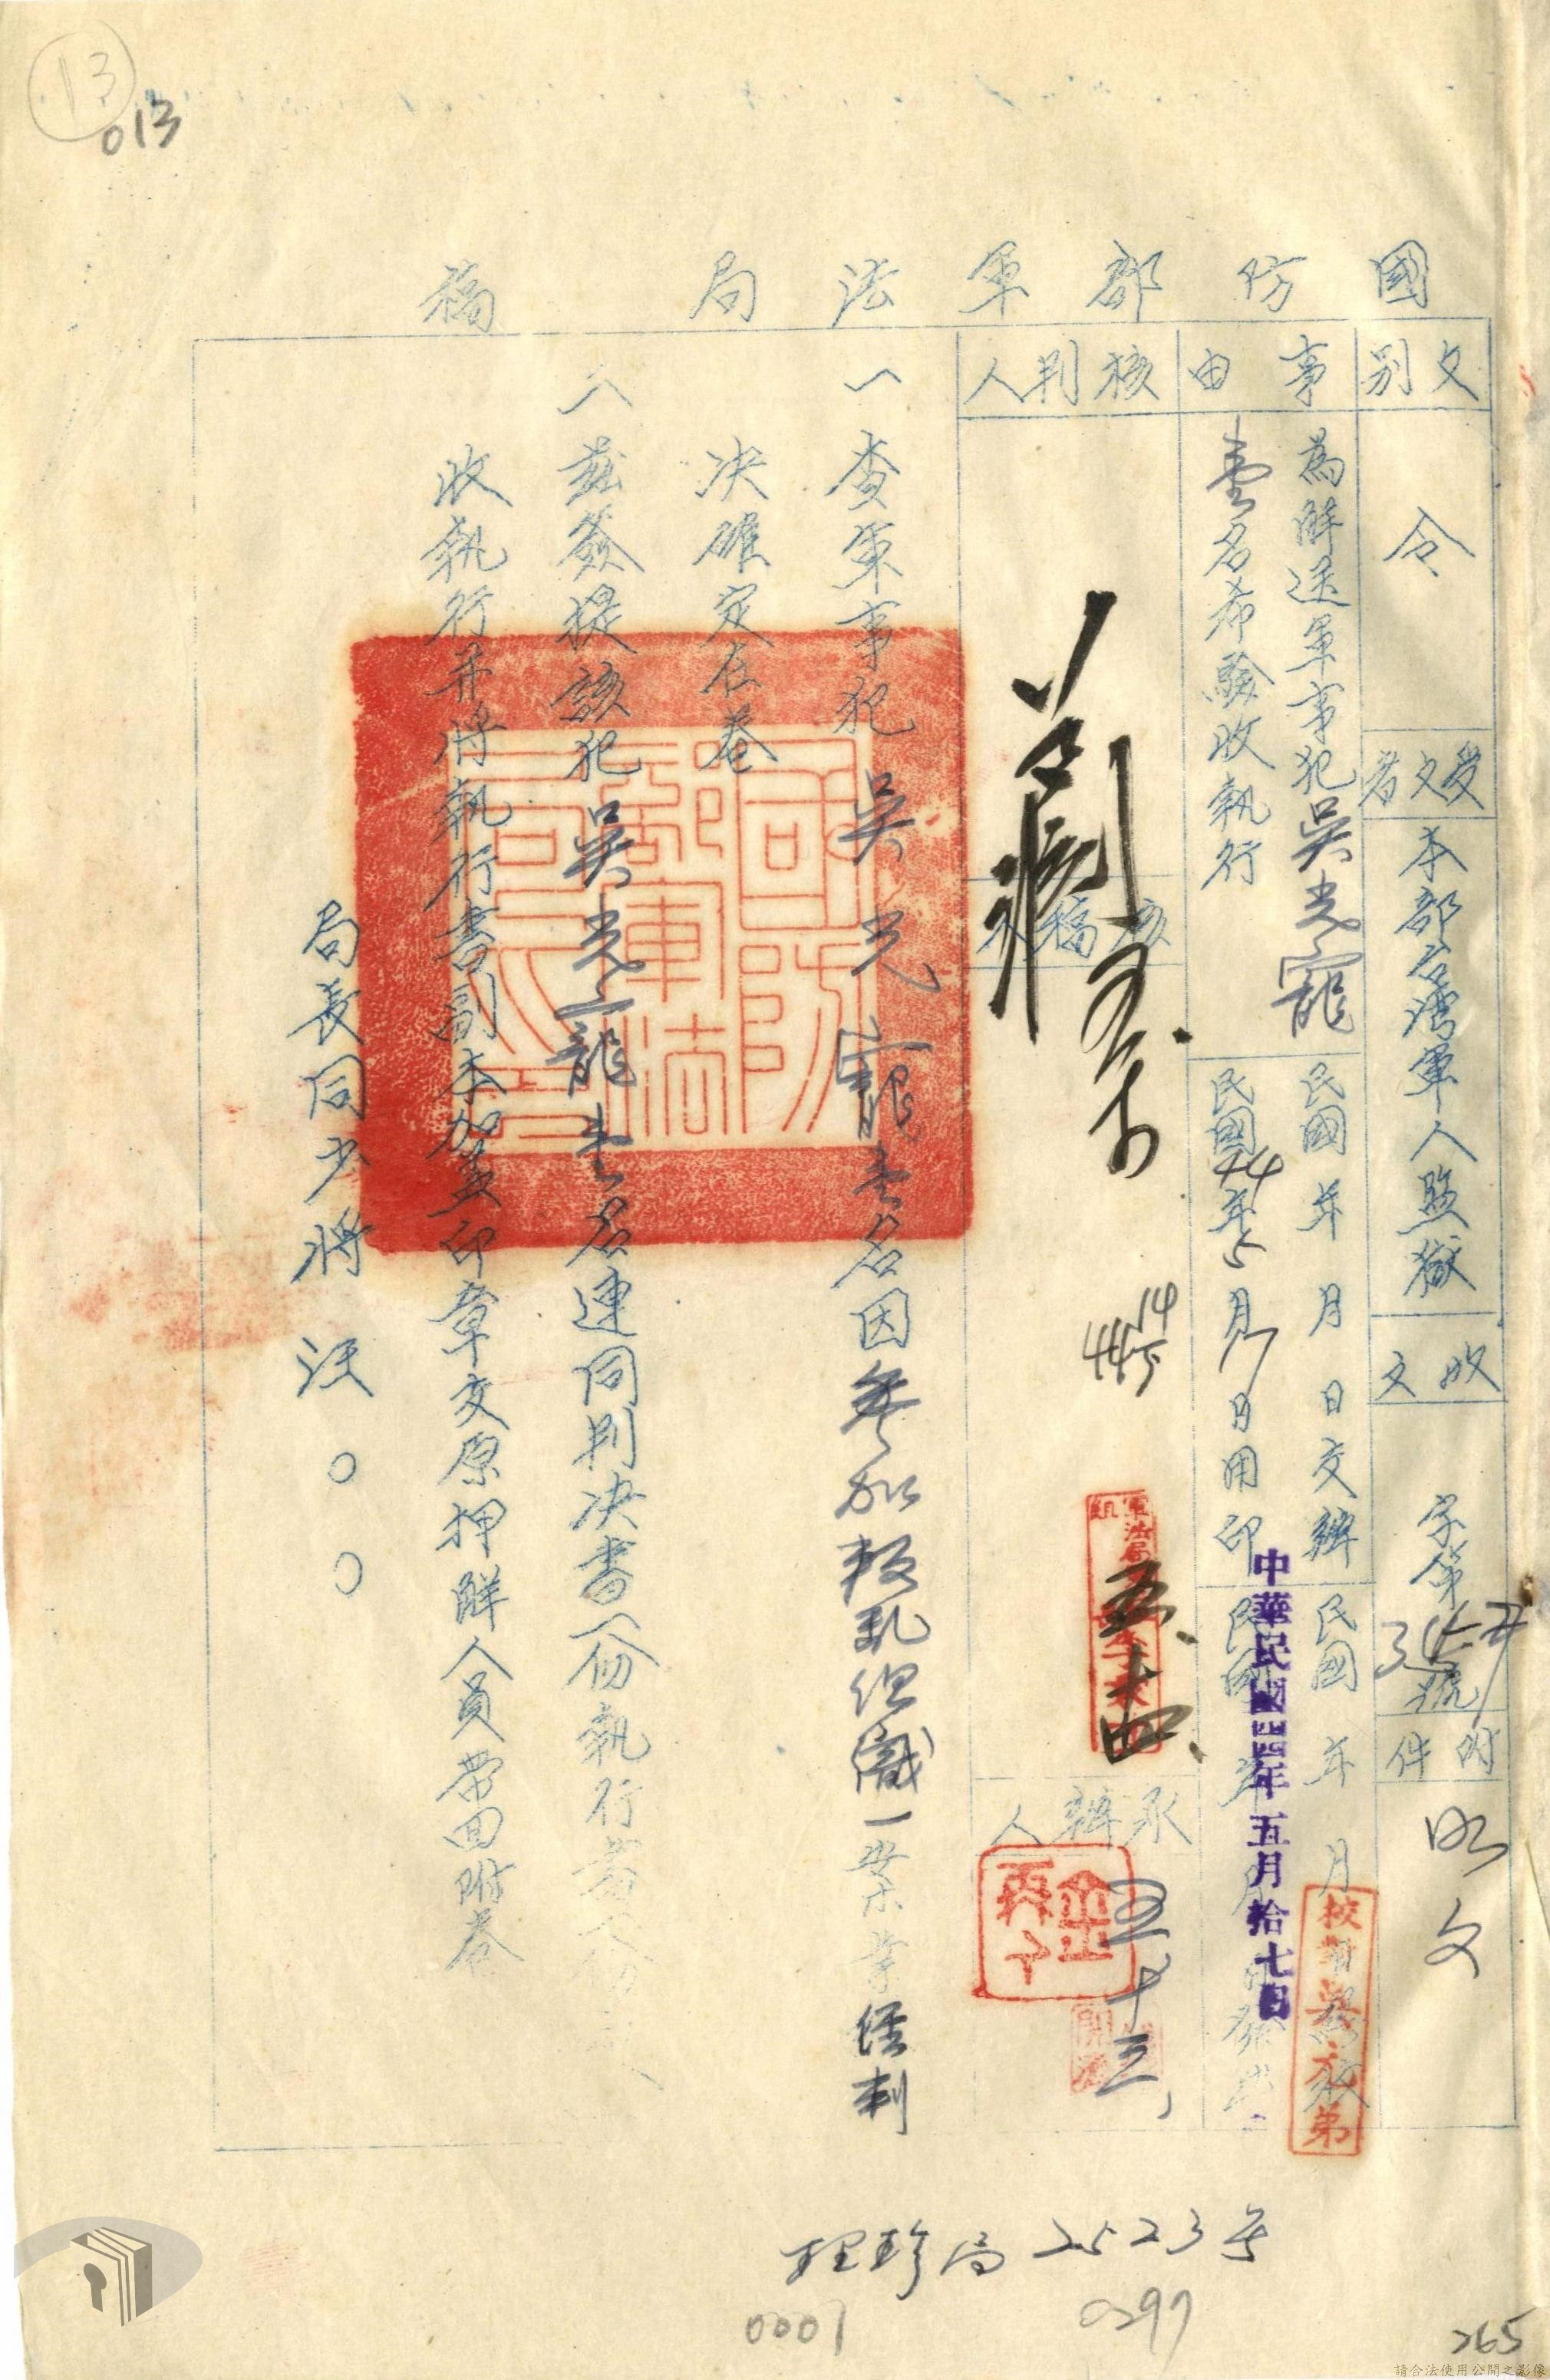 13
013
國防部軍法局稿
文別
令
受文者
本部台灣軍人監獄
收文
字第號
附件
如文
事由
為解送軍事犯吳光寵
壹名希驗收執行
民國年月日交辦
民國44年5月17日用印
民國年月
中華民國四四年五月拾七日
核判人
核稿
14
44 5
承辦人
五、十三、
一查軍事犯吳光寵壹名因參加叛亂組織一案業經判
決確定在卷
二茲簽提該犯吳光寵壹名連同判決書一份執行書
收執行并將執行書副本加蓋印章交原押解人員帶回附卷
局長同少將 汪○○
國防部軍法局之印
理珍局2523号
0001
0297
265
請合法使用公開之影像